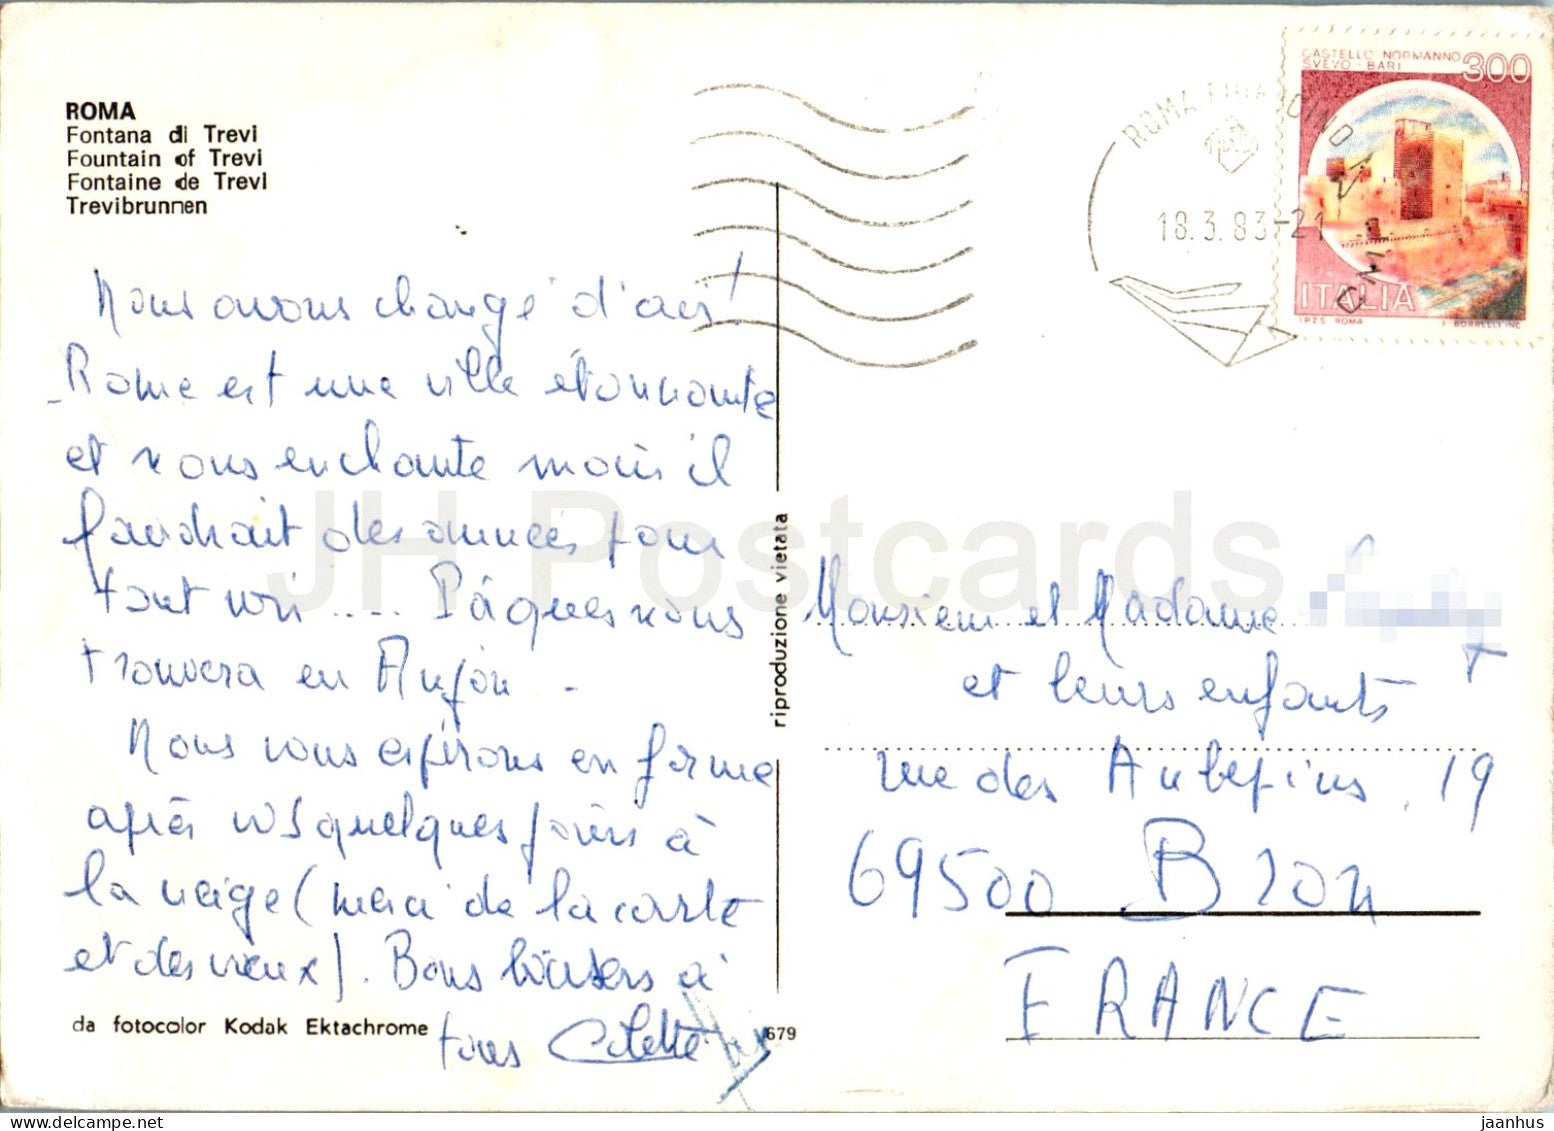 ROMA
Fontana di Trevi
Fountain of Trevi
Fontaine de Trevi
Trevibrunnen
Nous avons changé d'air!
Rome est une ville étonnante
et nous enchante mais il
faudrait des années pour
tout voir .... Pâques nous
trouvera en Anjou -
Nous vous espérons en forme
après vos quelques jours à
la neige (merci de la carte
et des vœux). Bons baisers à
tous Colette
da fotocolor Kodak Ektachrome
679
riproduzione vietata
CASTELLO NORMANNO
SVEVO - BARI
300
ITALIA
I.P.Z.S. ROMA
ROMA FIUMICINO
18.3.83-21
Monsieur et Madame
et leurs enfants
rue des Aubépins, 19
69500 Bron
FRANCE
JH Postcards
delcampe.net
jaanhus